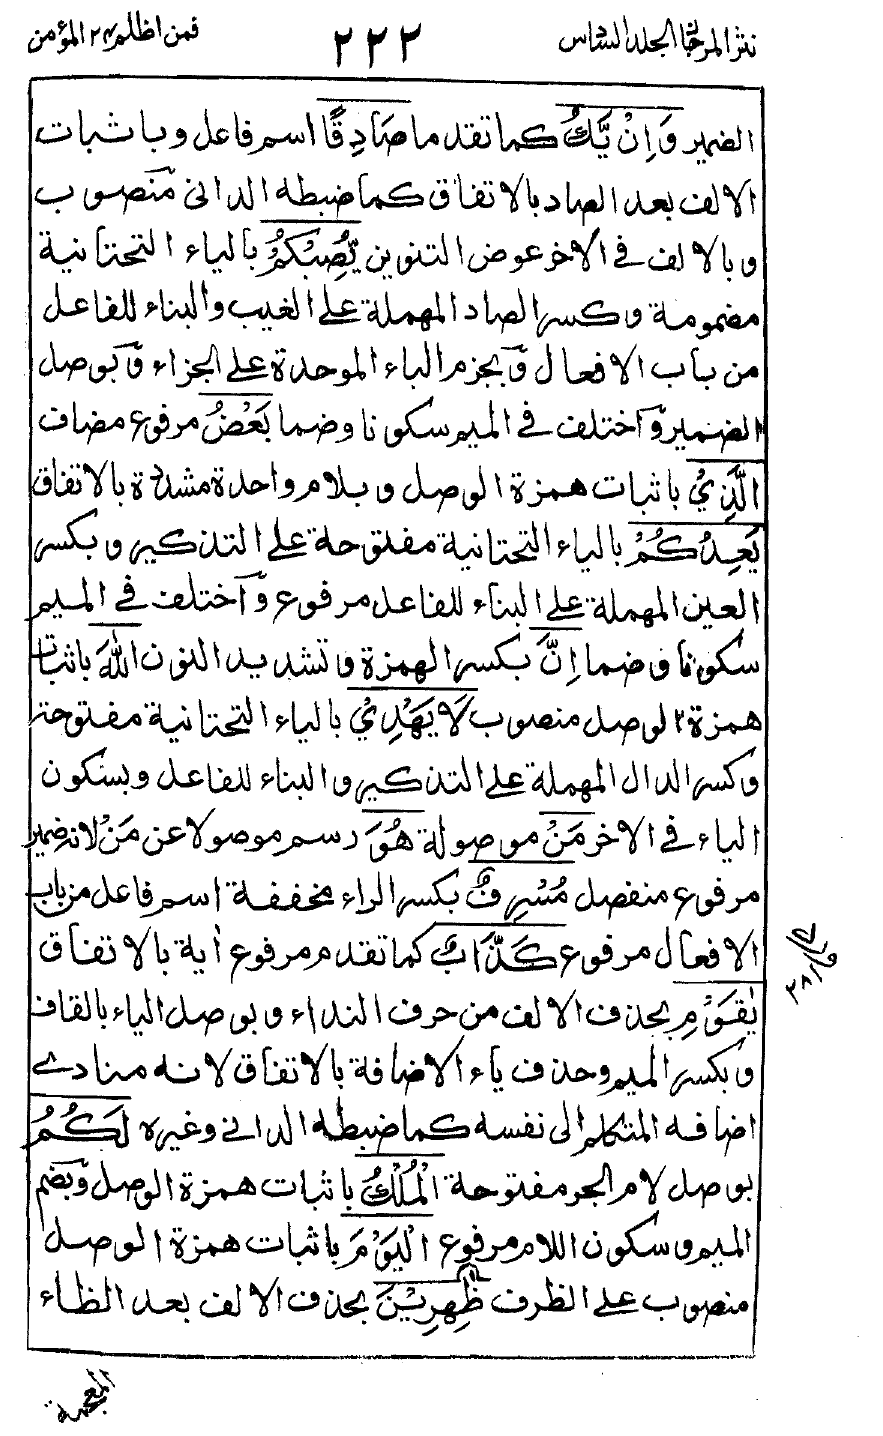 نثر المرجان الجلد السادس
٢٢٢
فمن اظلم ٢٤ المؤمن
الضمير وَاِنْ يَّكُ كما تقدم صَادِقًا اسم فاعل وباثبات
الالف بعد الصاد بالاتفاق كما ضبطه الدانى منصوب
وبالالف فى الاخر عوض التنوين يُّصِبْكُمْ بالياء التحتانية
مضمومة وكسر الصاد المهملة على الغيب والبناء للفاعل
من باب الافعال وبجزم الباء الموحدة على الجزاء وبوصل
الضمير واختلف فى الميم سكونا وضما بَعْضُ مرفوع مضاف
الَّذِيْ باثبات همزة الوصل وبلام واحدة مشددة بالاتفاق
يَعِدُكُمْ بالياء التحتانية مفتوحة على التذكير وبكسر
العين المهملة على البناء للفاعل مرفوع واختلف فى الميم
سكونا وضما اِنَّ بكسر الهمزة وتشديد النون اللهَ باثبات
همزة الوصل منصوب لَا يَهْدِيْ بالياء التحتانية مفتوحة
وكسر الدال المهملة على التذكير والبناء للفاعل وبسكون
الياء فى الاخر مَنْ موصولة هُوَ رسم موصولا عن مَنْ لانه ضمير
مرفوع منفصل مُسْرِفٌ بكسر الراء مخففة اسم فاعل من باب
الافعال مرفوع كَذَّابٌ كما تقدم مرفوع أية بالاتفاق
يٰقَوْمِ بحذف الالف من حرف النداء وبوصل الياء بالقاف
وبكسر الميم وحذف ياء الاضافة بالاتفاق لانه منادے
اضافه المتكلم الى نفسه كما ضبطه الدانى وغيره لَكُمُ
بوصل لام الجر مفتوحة الْمُلْكُ باثبات همزة الوصل وبضم
الميم وسكون اللام مرفوع الْيَوْمَ باثبات همزة الوصل
منصوب على الظرف ظٰهِرِيْنَ بحذف الالف بعد الظاء
المعجمة